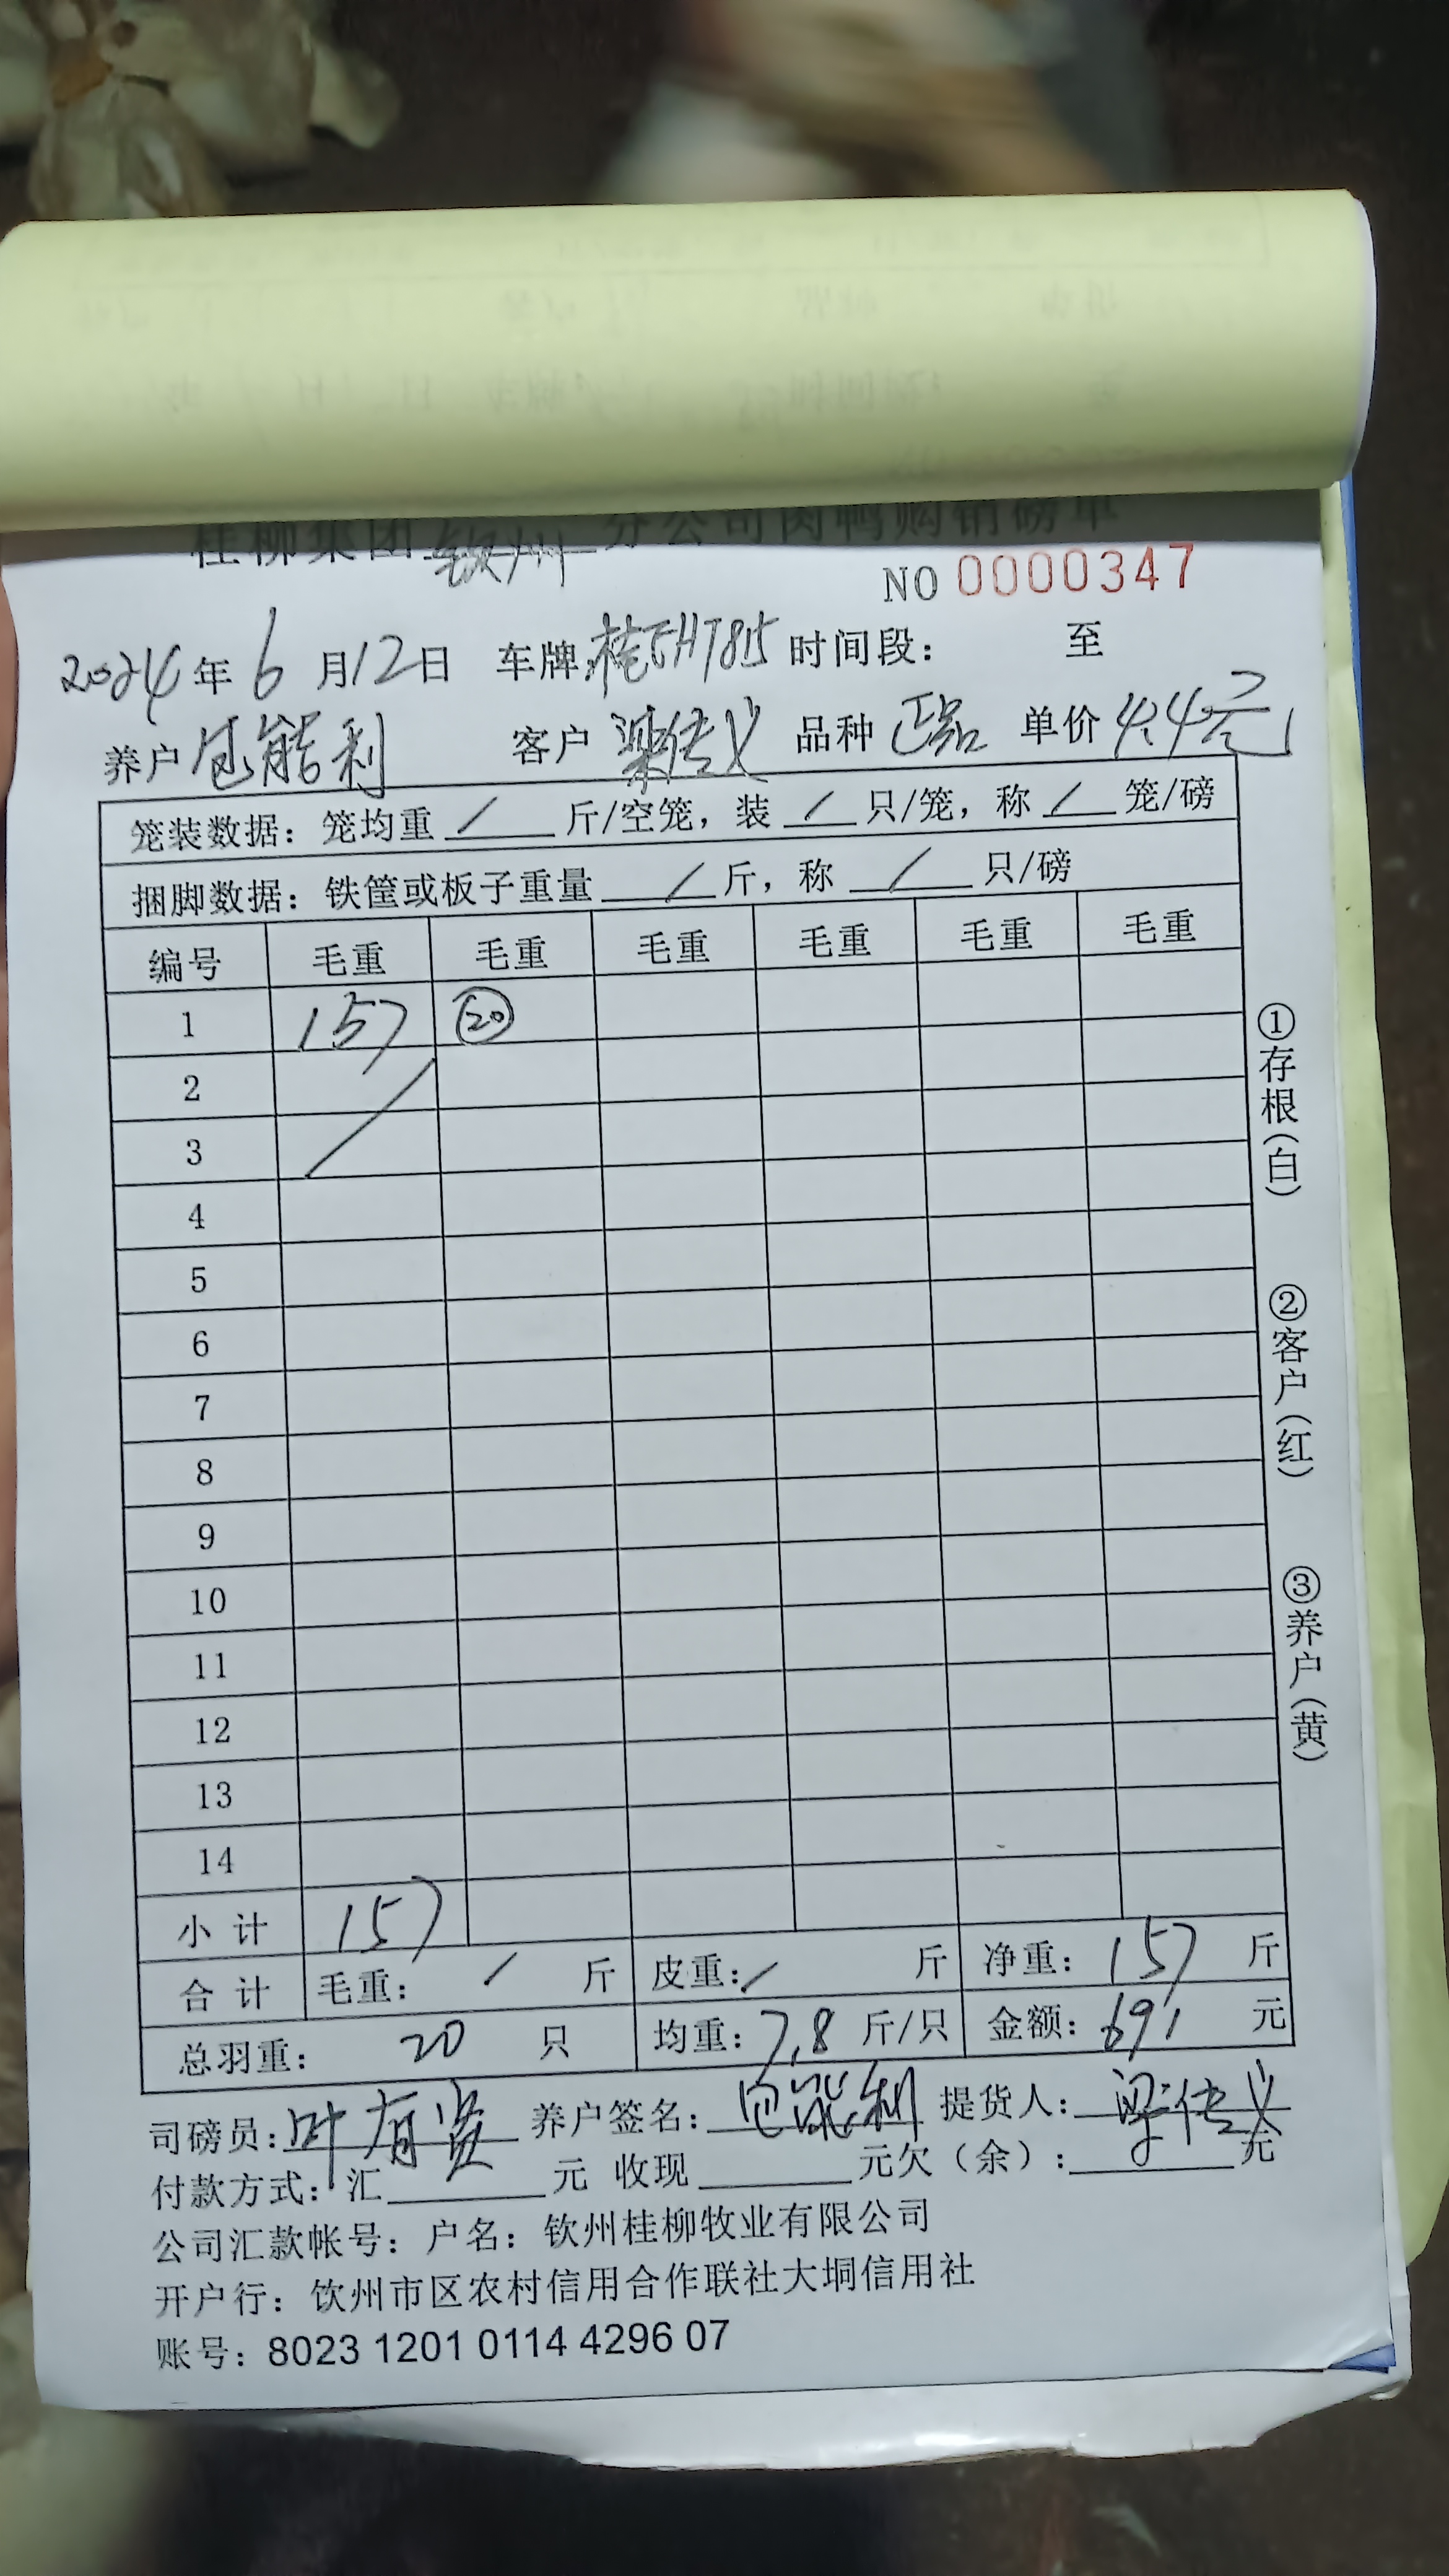 桂柳集团 钦州 分公司肉鸭购销磅单
NO 0000347
2024年6月12日 车牌: 时间段: 至
养户 包能利 客户 梁传义 品种 正品 单价 4.4元
笼装数据: 笼均重 / 斤/空笼, 装 / 只/笼, 称 / 笼/磅
捆脚数据: 铁筐或板子重量 / 斤, 称 / 只/磅
编号 毛重 毛重 毛重 毛重 毛重 毛重
1 157 ⑳
2
3
4
5
6
7
8
9
10
11
12
13
14
小计 157
合计 毛重: / 斤 皮重: / 斤 净重: 157 斤
总羽重: 20 只 均重: 7.8 斤/只 金额: 691 元
司磅员: 叶有贤 养户签名: 包能利 提货人: 梁传义
付款方式: 汇 元 收现 元欠(余): 元
公司汇款帐号: 户名: 钦州桂柳牧业有限公司
开户行: 饮州市区农村信用合作联社大垌信用社
账号: 8023 1201 0114 4296 07
①存根(白)
②客户(红)
③养户(黄)